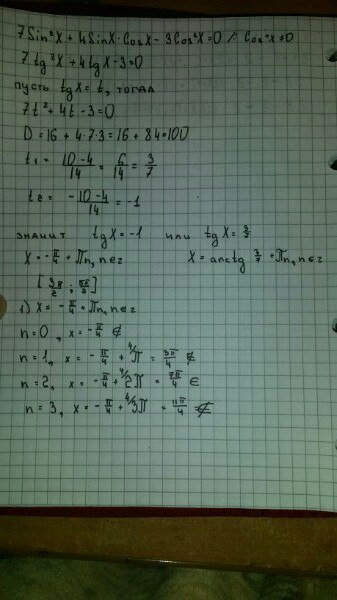 7Sin²X + 4SinX·CosX - 3Cos²X=0 /: Cos²x≠0
7tg²X + 4tgX - 3=0
пусть tgX = t, тогда
7t² + 4t - 3=0
D = 16 + 4·7·3 = 16 + 84 = 100
t₁ = (10-4)/14 = 6/14 = 3/7
t₂ = (-10-4)/14 = -1
значит tgX = -1 или tgX = 3/7
X = -π/4 + πn, n∈z X = arctg 3/7 + πn, n∈z
[3π/2 ; 5π/2]
1) X = -π/4 + πn, n∈z
n=0, x = -π/4 ∉
n=1, x = -π/4 + ⁴/π = 3π/4 ∉
n=2, x = -π/4 + ⁴/2π = 7π/4 ∈
n=3, x = -π/4 + ⁴/3π = 11π/4 ∉